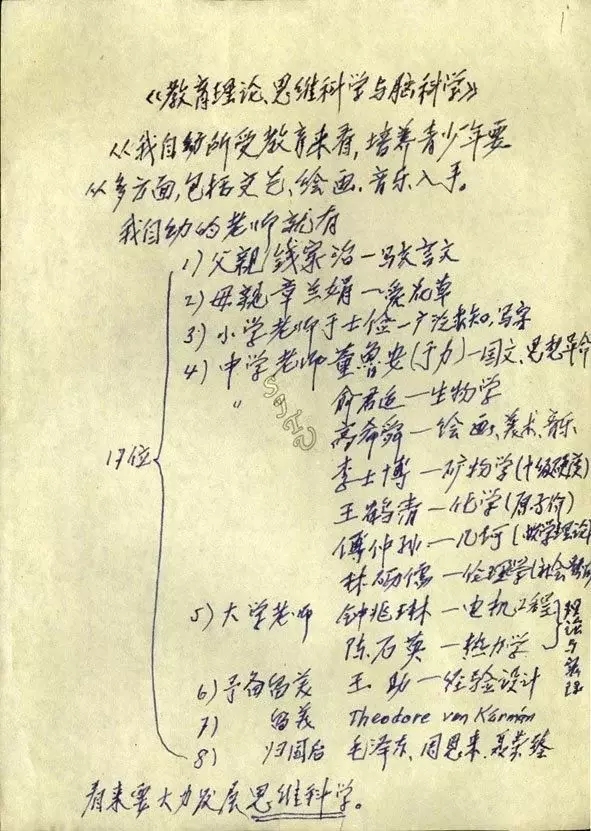 《教育理论、思维科学与脑科学》
从我自幼所受教育来看,培养青少年要
从多方面,包括文艺、绘画、音乐入手。
我自幼的老师就有
1)父親 钱家治—写文言文
2)母親 章兰娟—爱花草
3)小学老师于士俭—广泛求知,写字
4)中学老师 董鲁安(于力)—国文、思想革命
" 俞君适—生物学
高希舜—绘画、美术、音乐
李士博—矿物学(十级硬度)
17位
王鹤清—化学(原子价)
傅仲孙—几何(数学理论)
林砺儒—伦理学(社会
5)大学老师 钟兆琳—电机工程
陈石英—热力学
理论与实际
6)予备留美 王助—经验设计
7) 留美 Theodore von Kármán
8) 归国后 毛泽东、周恩来、聂荣臻
看来要大力发展思维科学。